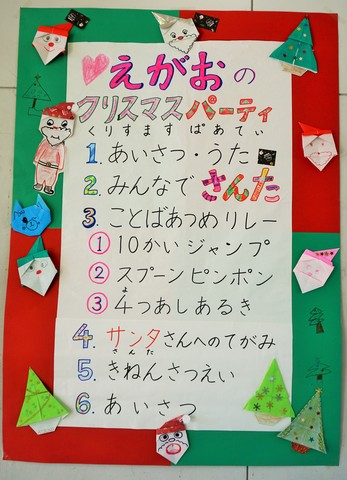 えがおの
クリスマスパーティ
くりすます ぱあてぃ
1. あいさつ・うた
2. みんなで さんた
3. ことばあつめリレー
① 10かいジャンプ
② スプーンピンポン
③ 4つあしあるき
よ
4. サンタさんへのてがみ
さんた
5. きねんさつえい
6. あいさつ